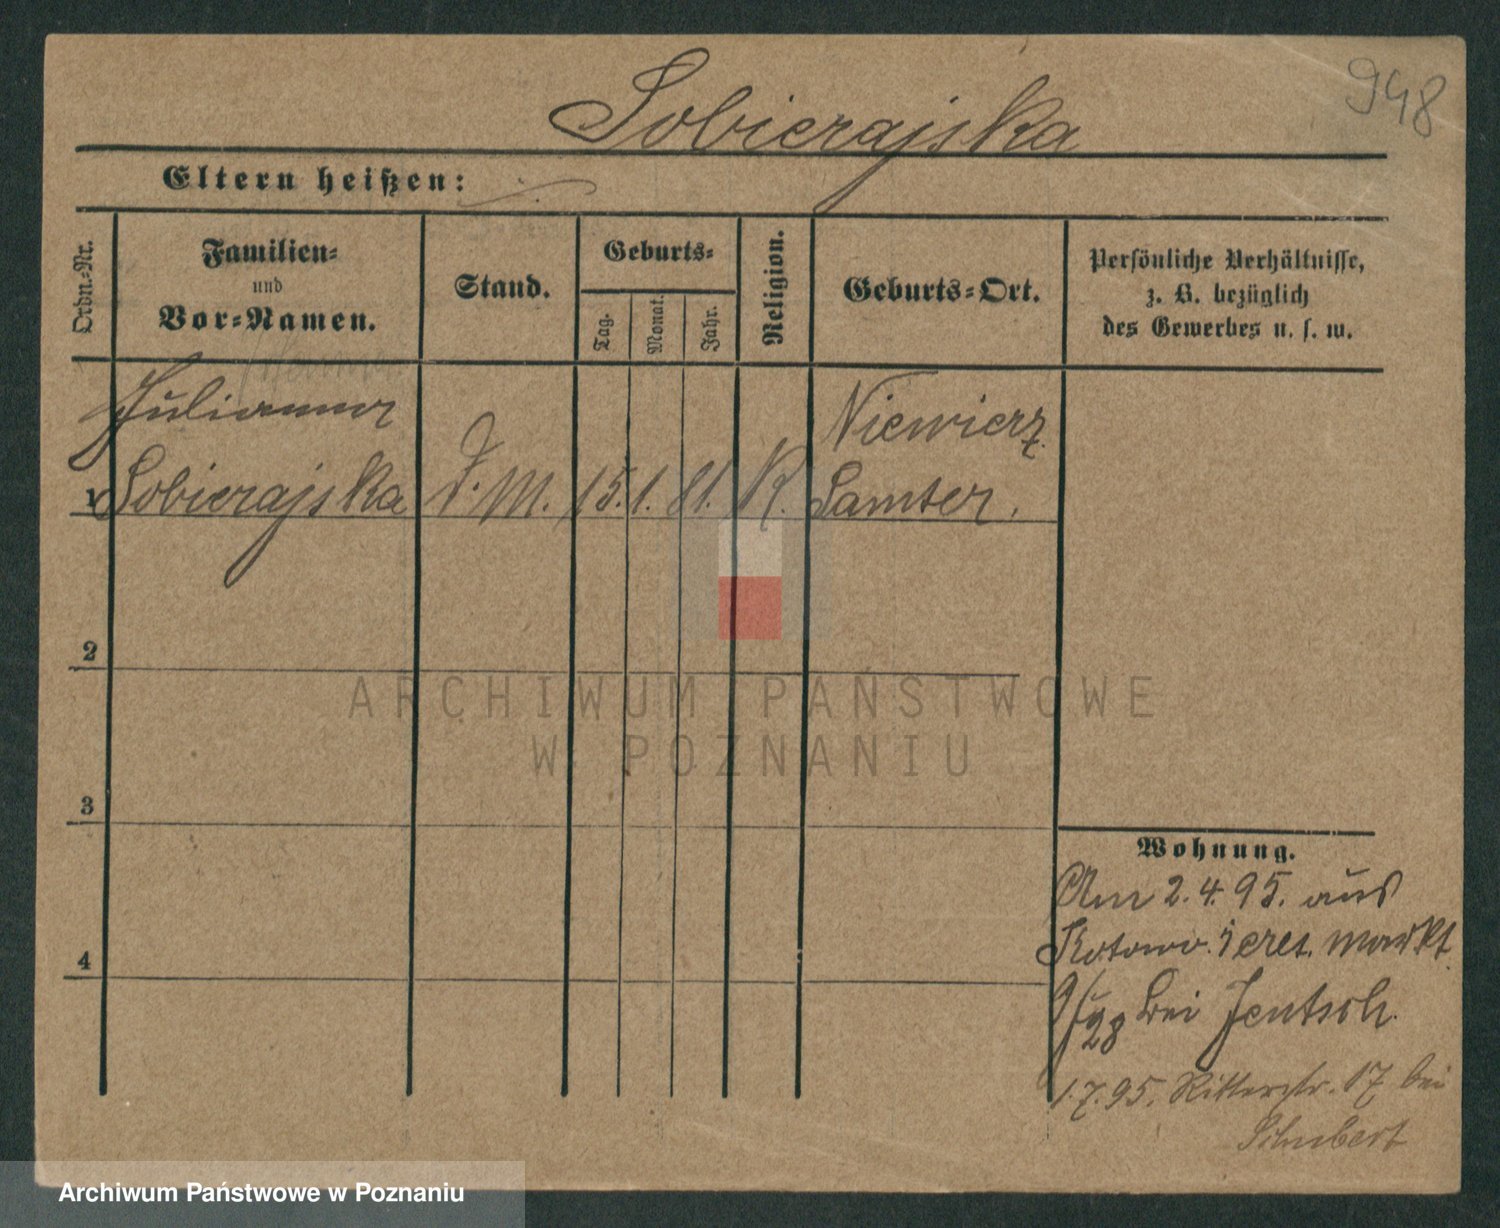 948
Sobierajska
Eltern heißen:
Ordn.-Nr.
Familien-
und
Vor-Namen.
Stand.
Geburts-
Tag.
Monat.
Jahr.
Religion.
Geburts-Ort.
Persönliche Verhältnisse,
z. B. bezüglich
des Gewerbes u. s. w.
Julianna
Niewierz
1 Sobierajska D. M. 15. 1. 81. K. Samter.
2
ARCHIWUM PAŃSTWOWE
W POZNANIU
3
Wohnung.
Am 2.4.95. aus
Kotowo. markt
9/28 bei Jentsch.
4
1.7.95. Ritterstr. 17 bei
Schubert
Archiwum Państwowe w Poznaniu